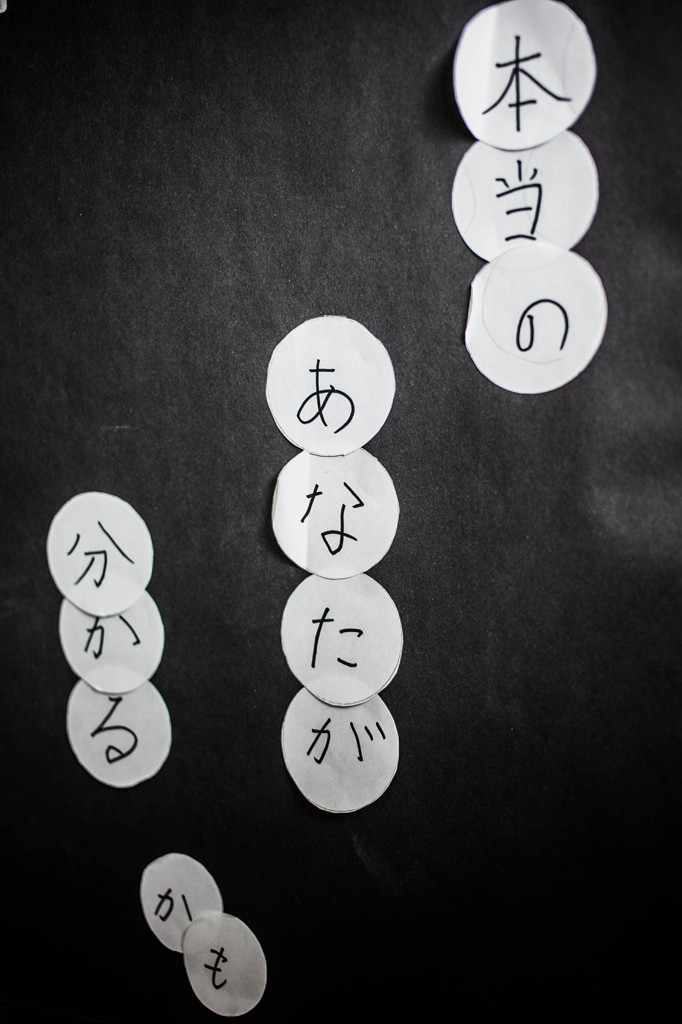 本当の
あなたが
分かる
かも